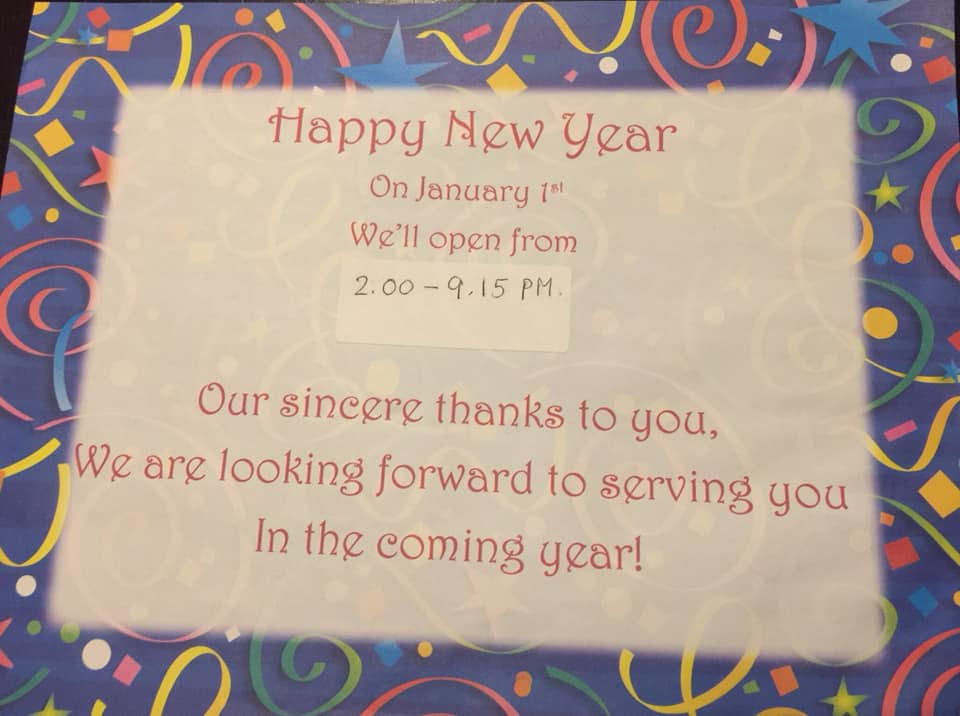 Happy New Year
On January 1st
We'll open from
2.00 - 9.15 PM.
Our sincere thanks to you,
We are looking forward to serving you
In the coming year!